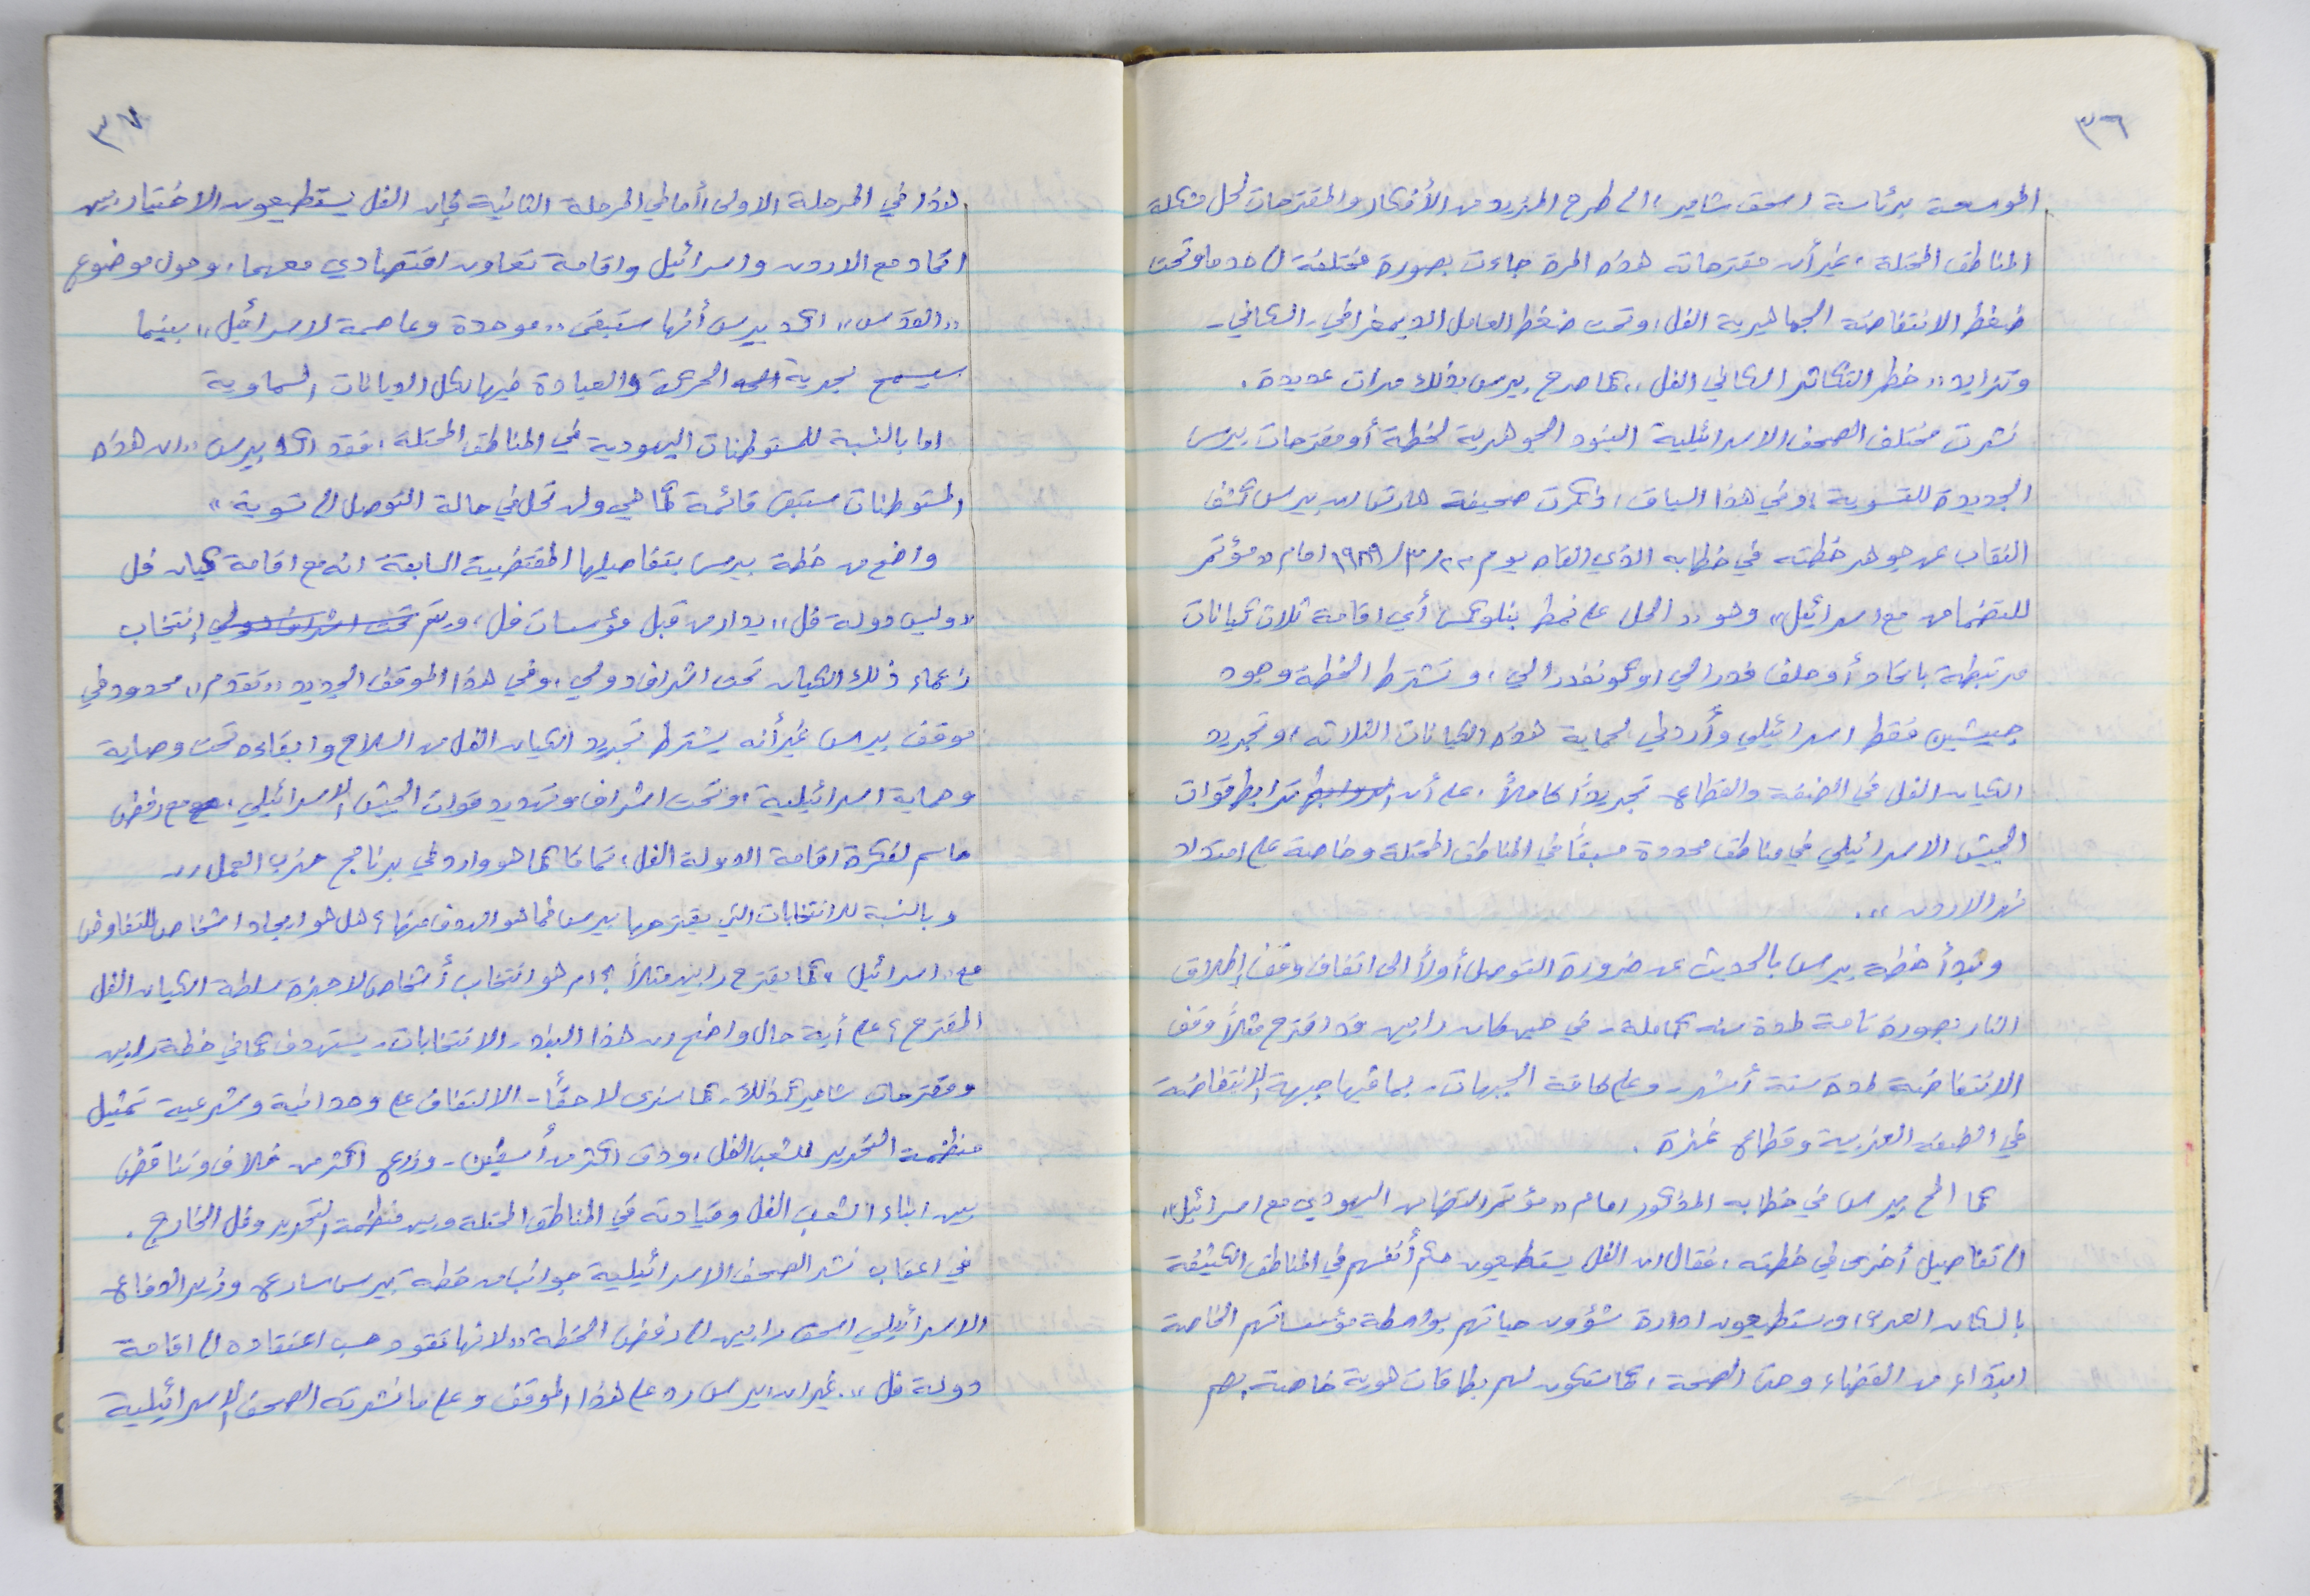 ٣٦
الموسعة برئاسة اسحق شامير، الى طرح المزيد من الأفكار والمقترحات لحل مشكلة
المناطق المحتلة، غير أن مقترحاته هذه المرة جاءت بصورة مختلفة الى حد ما وتحت
ضغط الانتفاضة الجماهيرية الفل، وتحت ضغط العامل الديمغرافي - السكاني -
وتزايد "خطر التكاثر السكاني الفل"، كما صرح بيرس بذلك مرات عديدة.
نشرت مختلف الصحف الاسرائيلية البنود الجوهرية لخطة أو مقترحات بيرس
الجديدة للتسوية، وفي هذا السياق، ذكرت صحيفة هآرتس ان بيرس كشف
النقاب عن جوهر خطته في خطابه الذي القاه يوم ٢٢/٣/١٩٨٩ امام "مؤتمر
للتضامن مع اسرائيل" وهو "الحل على نمط بنلوكس أي اقامة ثلاث كيانات
مرتبطة باتحاد أو حلف فدرالي او كونفدرالي، وتشترط الخطة وجود
جيشين فقط اسرائيلي وأردني لحماية هذه الكيانات الثلاثة، وتجريد
الكيان الفل في الضفة والقطاع تجريداً كاملاً، على أن ترابط قوات
الجيش الاسرائيلي في مناطق محدودة مسبقاً في المناطق المحتلة وخاصة على امتداد
نهر الاردن".
وتبدأ خطة بيرس بالحديث عن ضرورة التوصل أولاً الى اتفاق وقف إطلاق
النار بصورة تامة لمدة سنه كاملة - في حين كان رابين قد اقترح مثلاً وقف
الانتفاضة لمدة ستة أشهر - وعلى كافة الجبهات - بما فيها جبهة الانتفاضة
في الضفة الغربية وقطاع غزة.
كما المح بيرس في خطابه المذكور امام "مؤتمر التضامن اليهودي مع اسرائيل"
الى تفاصيل أخرى في خطته، فقال ان الفل يستطيعون حكم أنفسهم في المناطق الكثيفة
بالسكان العرب، ويستطيعون ادارة شؤون حياتهم بواسطة مؤسساتهم الخاصة
ابتداء من القضاء وحتى الصحة، كما ستكون لهم بطاقات هوية خاصة بهم
٣٧
هذا في المرحلة الاولى أما في المرحلة الثانية فإن الفل يستطيعون الاختيار بين
اتحاد مع الاردن واسرائيل واقامة تعاون اقتصادي معهما، وحول موضوع
"القدس" اكد بيرس أنها ستبقى "موحدة وعاصمة لاسرائيل" بينما
سيسمح بحرية الحركة والعبادة فيها لكل الديانات السماوية
اما بالنسبة للمستوطنات اليهودية في المناطق المحتلة، فقد اكد بيرس "ان هذه
المستوطنات ستبقى قائمة كما هي ولن تحل في حالة التوصل الى تسوية"
واضح من خطة بيرس بتفاصيلها المقتضبة السابقة انه مع اقامة كيان فل
"وليس دولة فل" يدار من قبل مؤسسات فل، ويتم تحت اشراف دولي إنتخاب
زعماء ذلك الكيان تحت اشراف دولي، وفي هذا الموقف الجديد "تقدم" محدود في
موقف بيرس غير أنه يشترط تجريد الكيان الفل من السلاح وابقاءه تحت وصاية
وحماية اسرائيلية، وتحت اشراف وتهديد قوات الجيش الاسرائيلي، مع رفض
حاسم لفكرة اقامة الدولة الفل، تماماً كما هو وارد في برنامج حزب العمل..
وبالنسبة للانتخابات التي يقترحها بيرس فما هو الهدف منها؟ هل هو ايجاد اشخاص للتفاوض
مع "اسرائيل" كما يقترح رابين مثلاً؟ ام هو انتخاب أشخاص لاجهزة سلطة الكيان الفل
المقترح؟ على أية حال واضح ان هذا البند - الانتخابات - يستهدف كما في خطة رابين
ومقترحات شامير كذلك - كما سنرى لاحقاً - الالتفاف على وحدانية وشرعية تمثيل
منظمة التحرير للشعب الفل، ودق اكثر من أسفين - وزرع اكثر من خلاف وتناقض
بين ابناء الشعب الفل وقيادته في المناطق المحتلة وبين منظمة التحرير وفل الخارج.
في اعقاب نشر الصحف الاسرائيلية جوانب من خطة بيرس سارع وزير الدفاع
الاسرائيلي اسحق رابين الى رفض الخطة "لانها تقود حسب اعتقاده الى اقامة
دولة فل"، غير ان بيرس رد على هذا الموقف وعلى ما نشرته الصحف الاسرائيلية